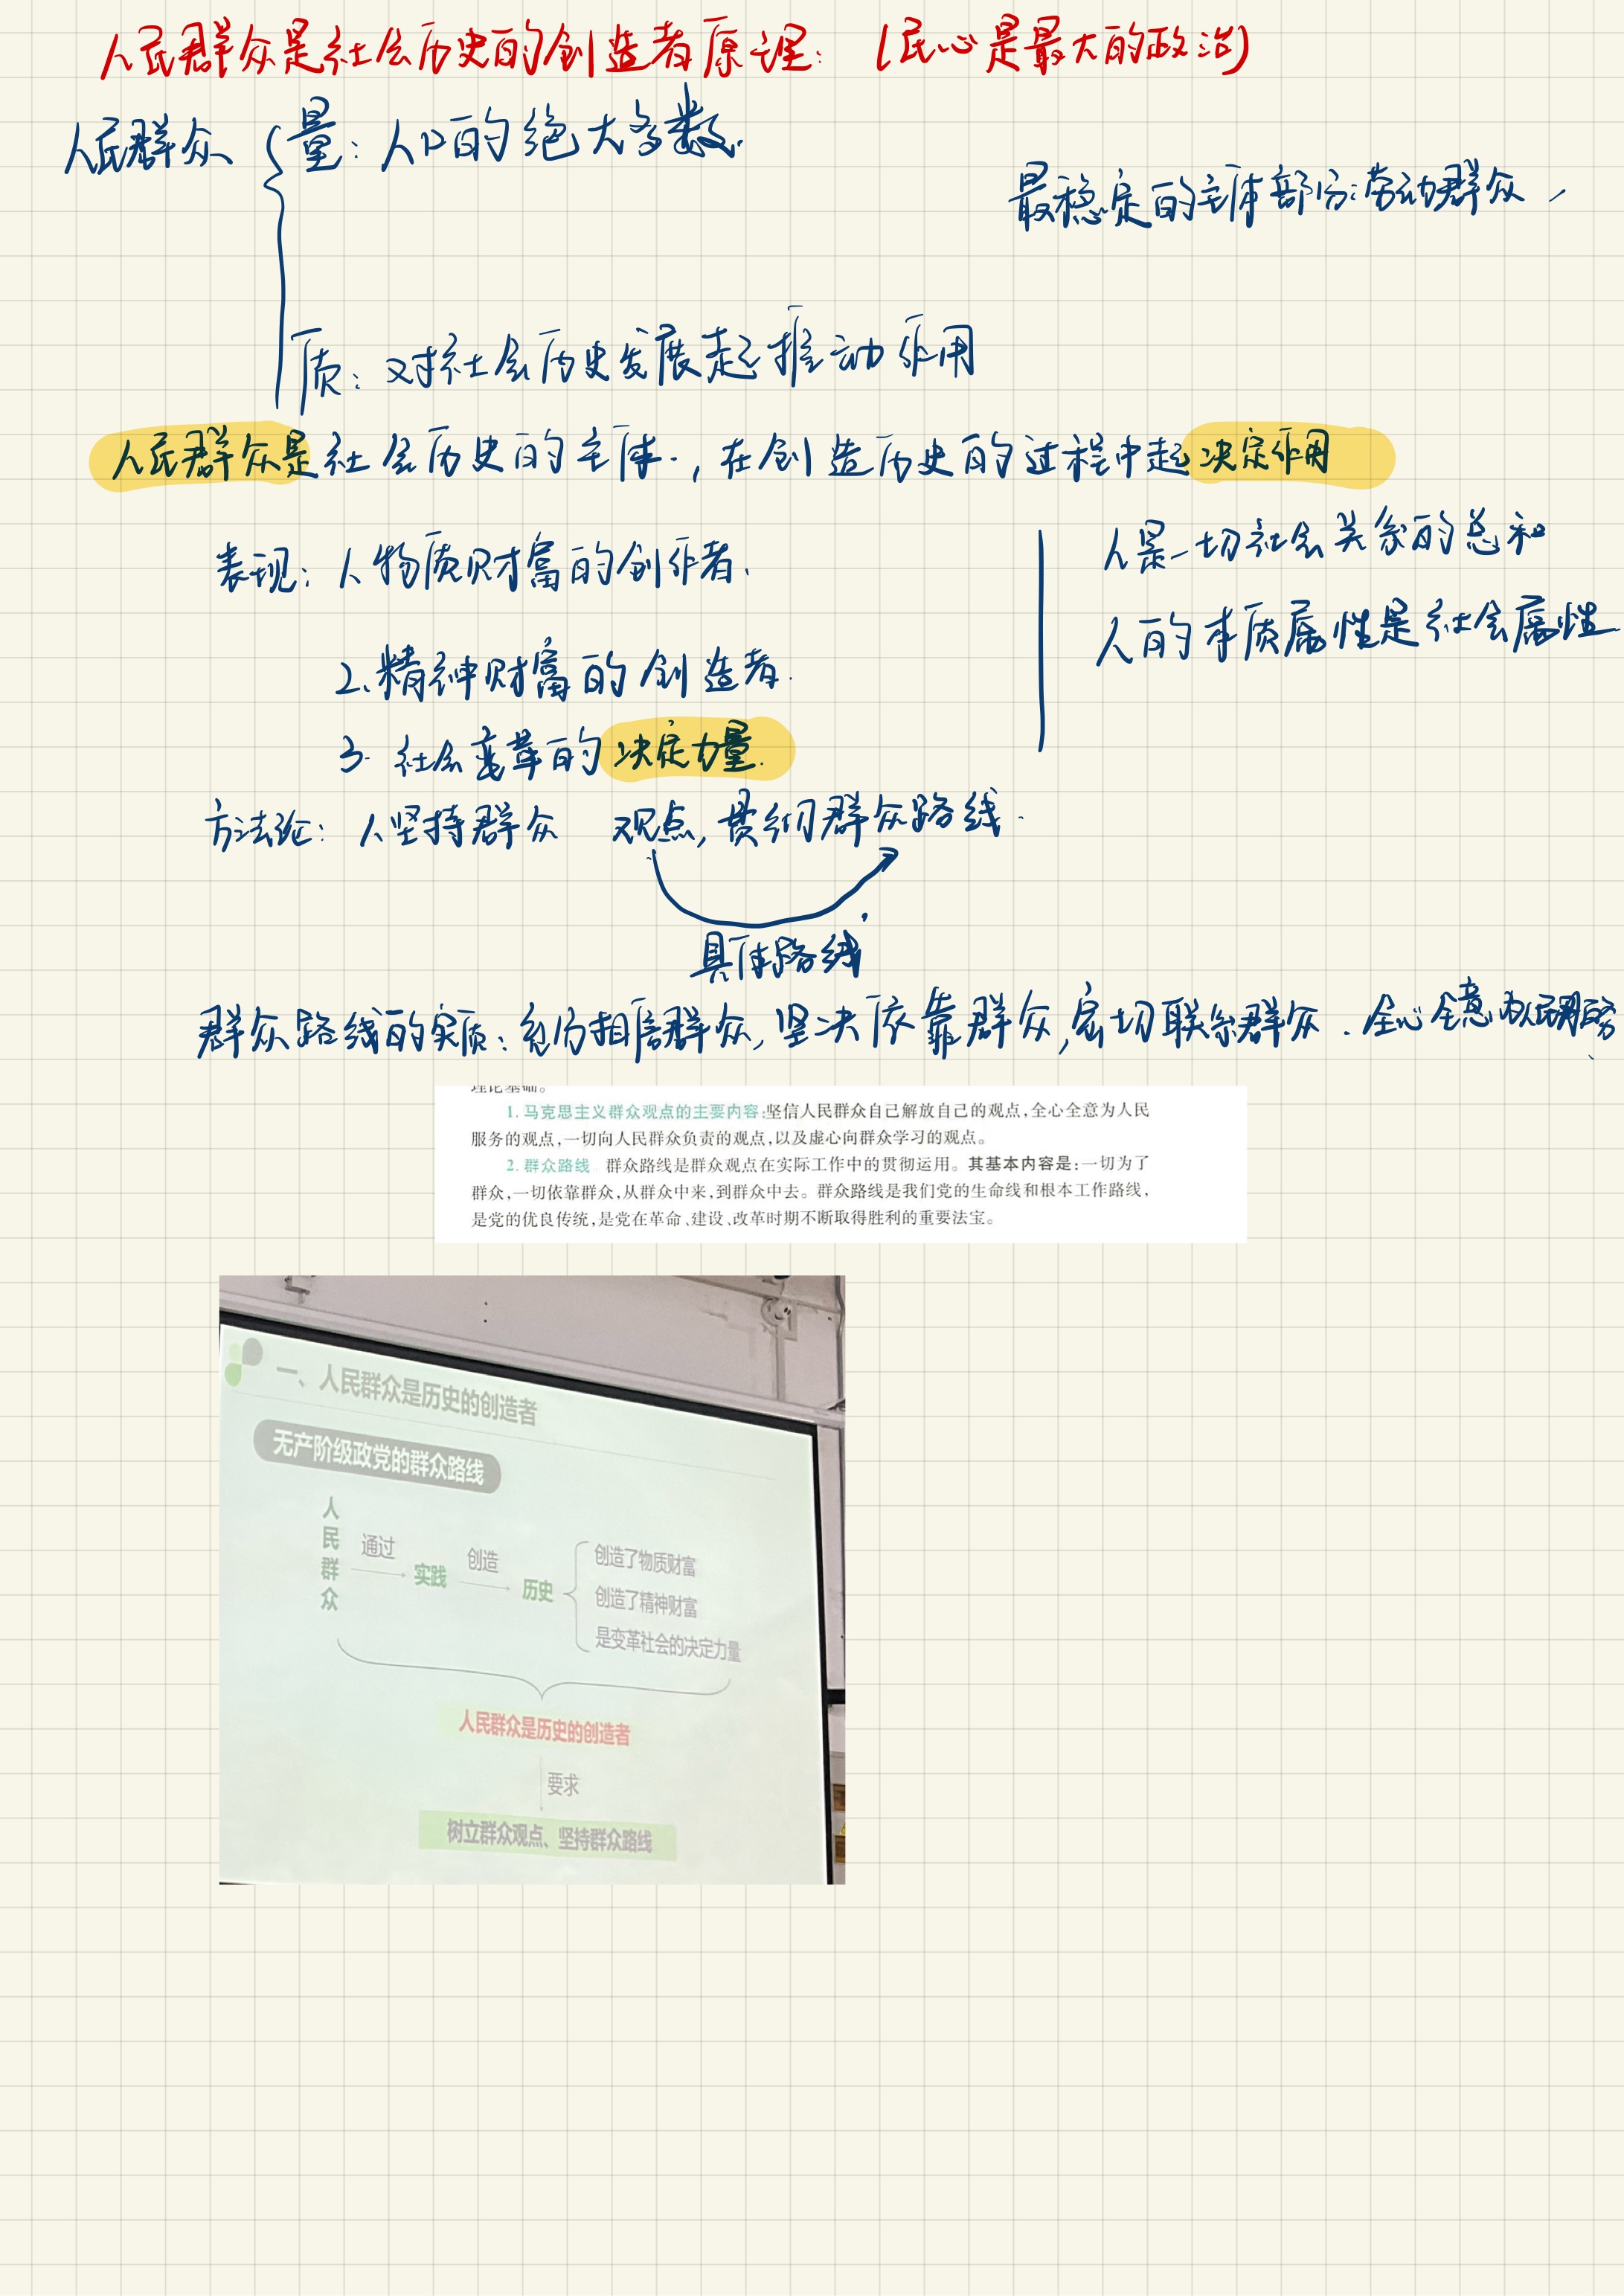 人民群众是社会历史的创造者原理：（民心是最大的政治）
人民群众
量：人口的绝大多数.
最稳定的主体部分：劳动群众，
质：对社会历史发展起推动作用
人民群众是社会历史的主体.，在创造历史的过程中起决定作用
表现：1、物质财富的创作者、
2、精神财富的创造者.
3. 社会变革的决定力量.
人是一切社会关系的总和
人的本质属性是社会属性
方法论：1、坚持群众 观点，贯彻群众路线.
具体路线
群众路线的实质：充分相信群众，坚决依靠群众，密切联系群众.全心全意为人民服务、
理论基础。
1. 马克思主义群众观点的主要内容:坚信人民群众自己解放自己的观点,全心全意为人民
服务的观点,一切向人民群众负责的观点,以及虚心向群众学习的观点。
2. 群众路线 群众路线是群众观点在实际工作中的贯彻运用。其基本内容是:一切为了
群众,一切依靠群众,从群众中来,到群众中去。群众路线是我们党的生命线和根本工作路线,
是党的优良传统,是党在革命、建设、改革时期不断取得胜利的重要法宝。
一、人民群众是历史的创造者
无产阶级政党的群众路线
人民群众
通过
实践
创造
历史
创造了物质财富
创造了精神财富
是变革社会的决定力量
人民群众是历史的创造者
要求
树立群众观点、坚持群众路线